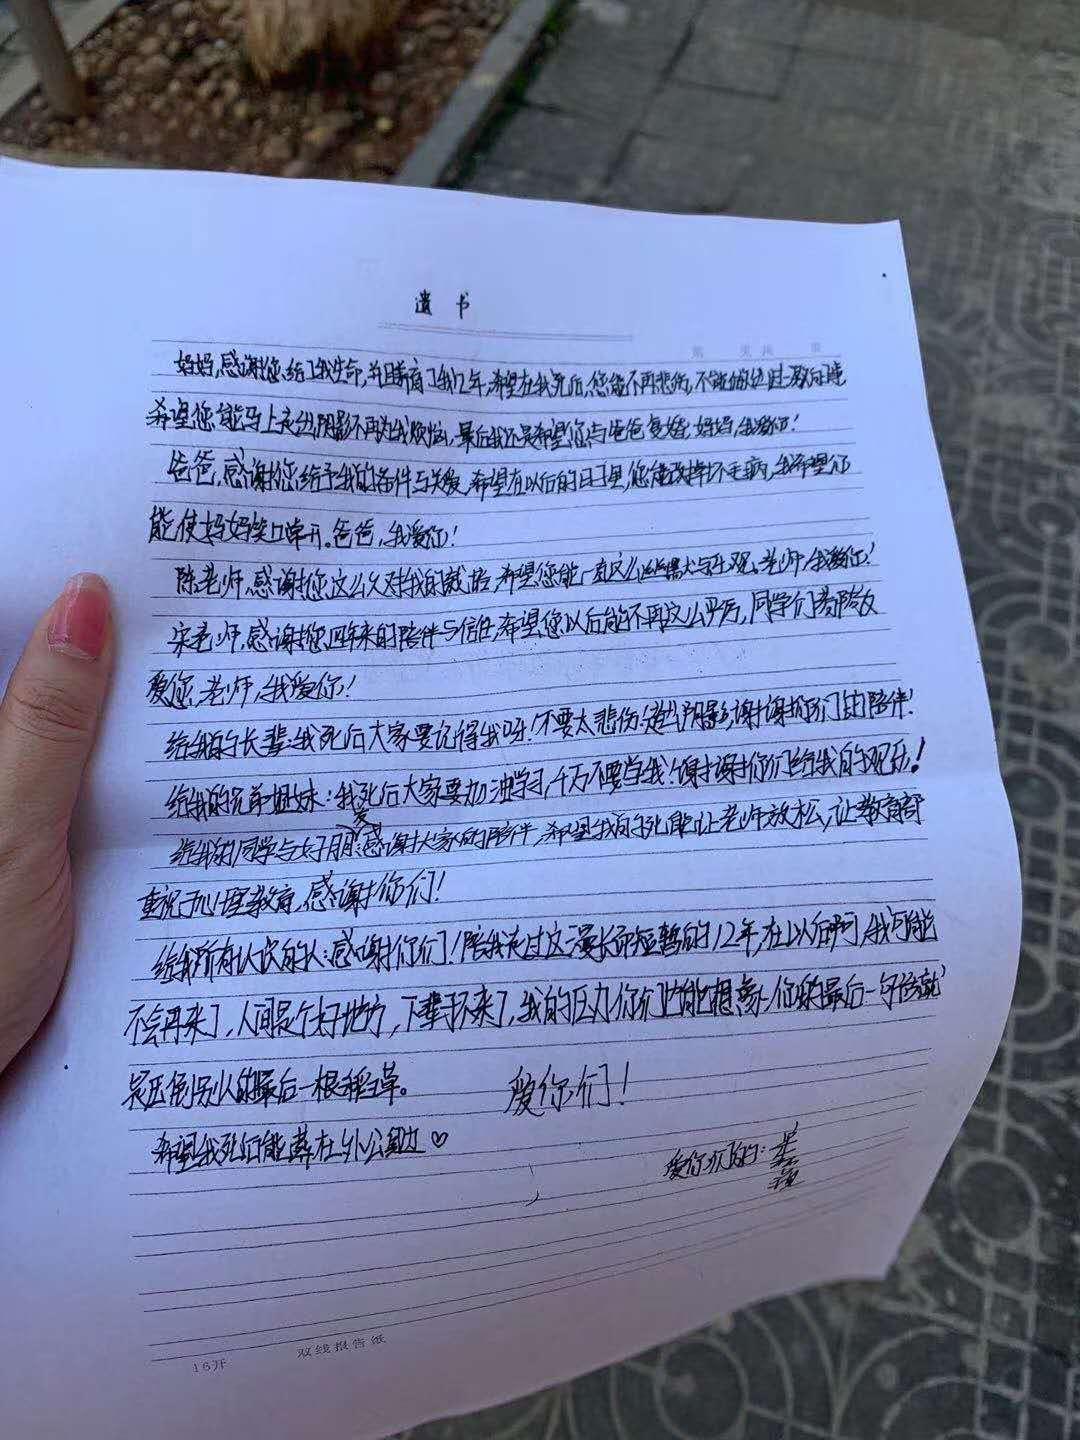 遗书
第 页 共 页
妈妈，感谢您给了我生命，并且养育了我12年，希望在我死后，您能不再悲伤，不
希望您能马上走出阴影不再为我烦恼，最后我还是希望您与爸爸复婚，妈妈，我爱你！
爸爸，感谢您给予我的条件与关爱，希望在以后的日子里，您能改掉坏毛病，我希望你
能使妈妈笑口常开。爸爸，我爱你！
陈老师，感谢您这么久对我的栽培，希望您能一直这么与乐观、老师，我爱您！
宋老师，感谢您四年来的陪伴与信任，希望您以后能不再这么严厉，同学们都
爱您，老师，我爱你！
给我的长辈：我死后大家要记得我呀！不要太悲伤！阴影！谢谢你们的陪伴！
给我的兄弟姐妹：我死后大家要加油学习，千万不要学我！谢谢你们给我的
给我的同学与好朋友：感谢大家的陪伴，希望我的死能让老师放松，让教育部
重视于心理教育，感谢你们！
给我所有认识的人：感谢你们！陪我走过这漫长而短暂的12年，在以后啊，我可能
不会再来了，人间是个好地方，下辈子不来了，我的压力你们也能想象，你的最后一句话就
是压倒别人的最后一根稻草。 爱你们！
希望我死后能葬在外公边♡
爱你们的：
16开 双线报告纸